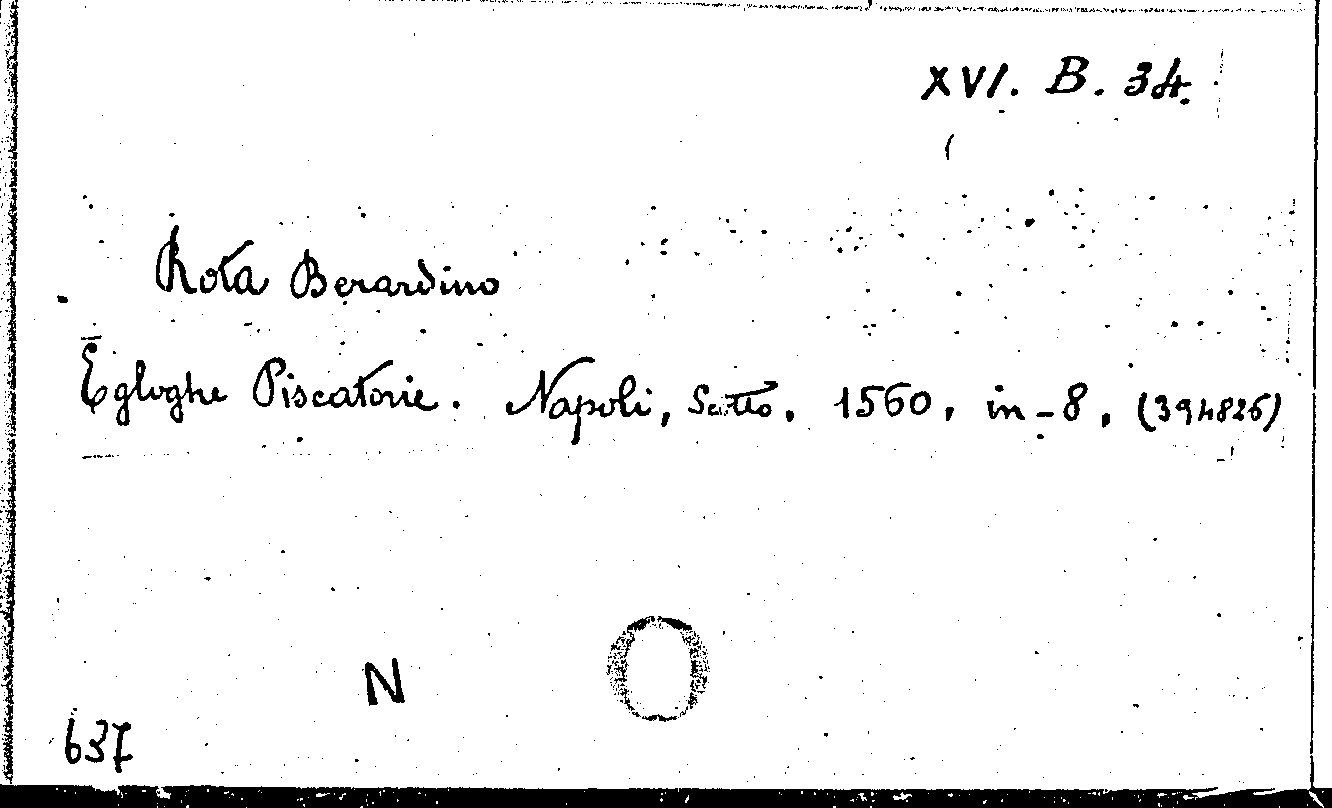 XVI. B. 34.
Rota Berardino
Egloghe Piscatorie. Napoli, Scotto. 1560, in-8, (394826)
N
637